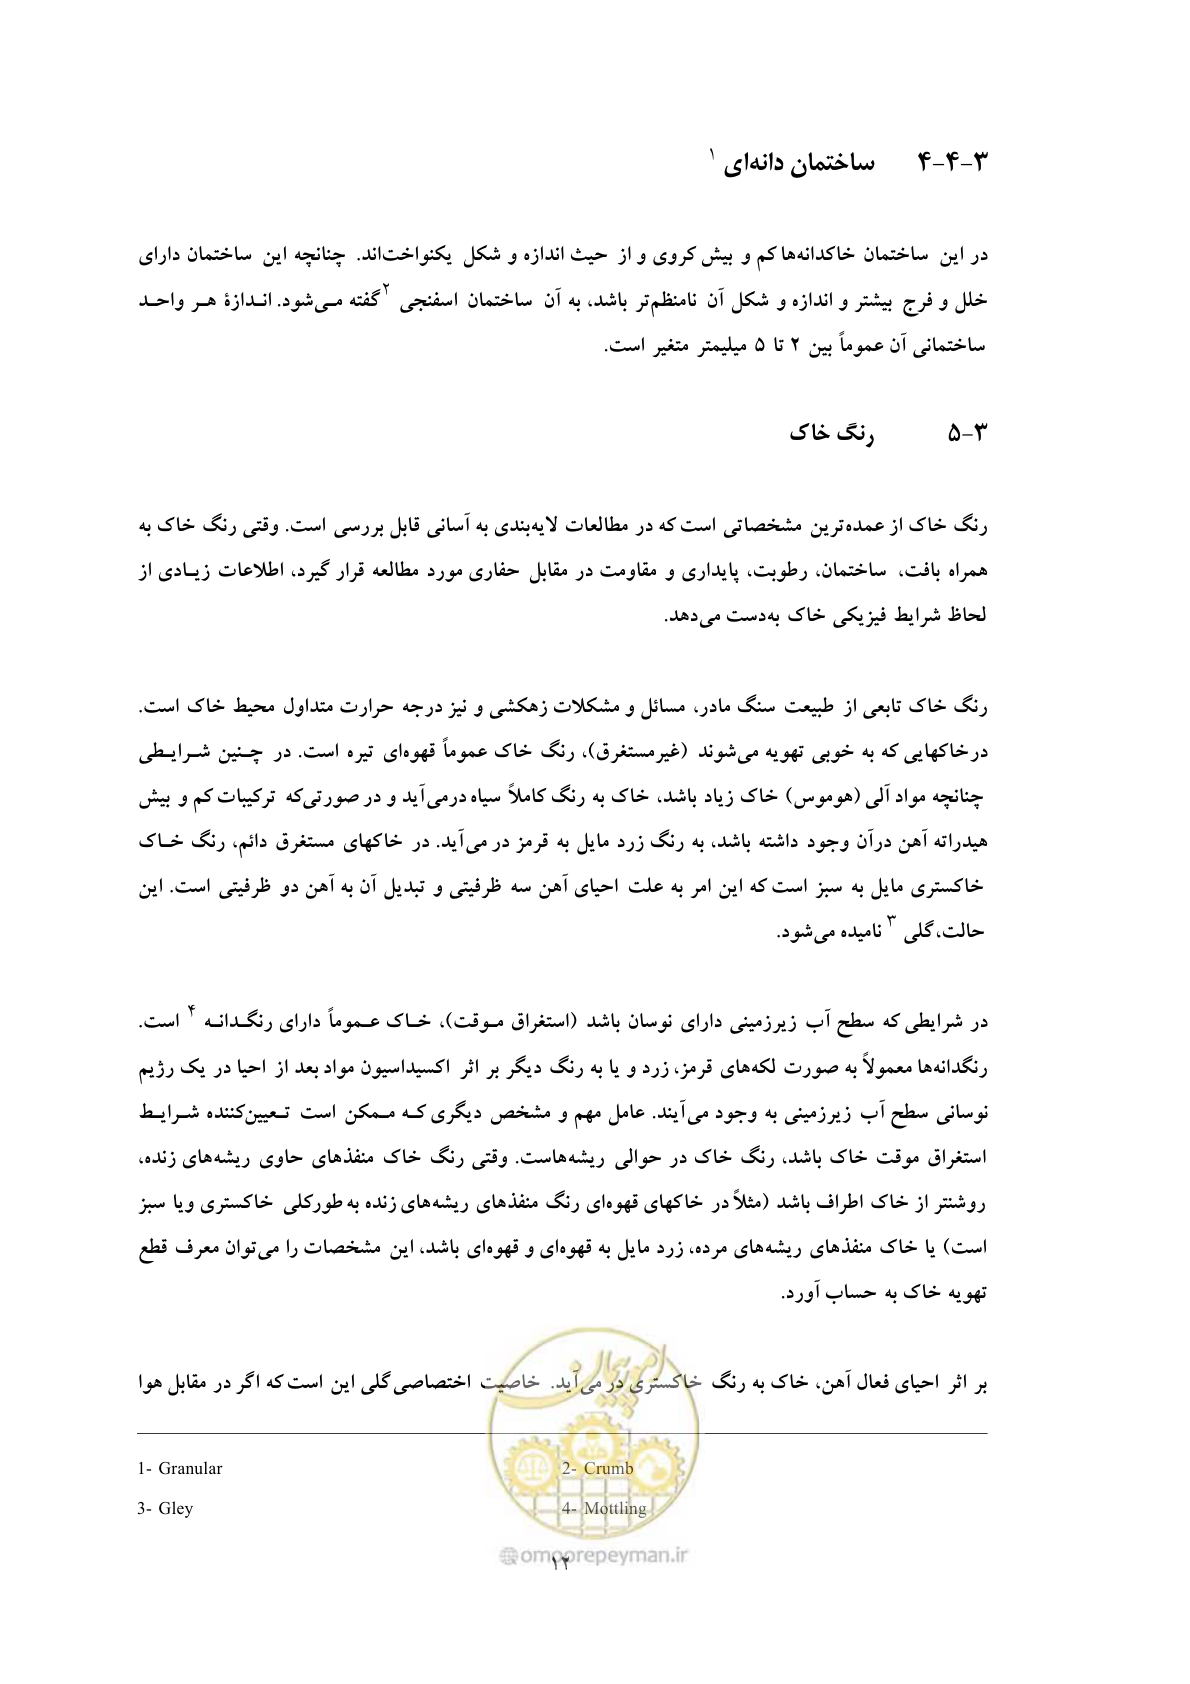 ۳-۴-۴ ساختمان دانه‌ای ۱
در این ساختمان خاکدانه‌ها کم و بیش کروی و از حیث اندازه و شکل یکنواخت‌اند. چنانچه این ساختمان دارای
خلل و فرج بیشتر و اندازه و شکل آن نامنظم‌تر باشد، به آن ساختمان اسفنجی ۲ گفته می‌شود. اندازهٔ هر واحد
ساختمانی آن عموماً بین ۲ تا ۵ میلیمتر متغیر است.
۳-۵ رنگ خاک
رنگ خاک از عمده‌ترین مشخصاتی است که در مطالعات لایه‌بندی به آسانی قابل بررسی است. وقتی رنگ خاک به
همراه بافت، ساختمان، رطوبت، پایداری و مقاومت در مقابل حفاری مورد مطالعه قرار گیرد، اطلاعات زیادی از
لحاظ شرایط فیزیکی خاک به‌دست می‌دهد.
رنگ خاک تابعی از طبیعت سنگ مادر، مسائل و مشکلات زهکشی و نیز درجه حرارت متداول محیط خاک است.
درخاکهایی که به خوبی تهویه می‌شوند (غیرمستغرق)، رنگ خاک عموماً قهوه‌ای تیره است. در چنین شرایطی
چنانچه مواد آلی (هوموس) خاک زیاد باشد، خاک به رنگ کاملاً سیاه درمی‌آید و در صورتی‌که ترکیبات کم و بیش
هیدراته آهن درآن وجود داشته باشد، به رنگ زرد مایل به قرمز در می‌آید. در خاکهای مستغرق دائم، رنگ خاک
خاکستری مایل به سبز است که این امر به علت احیای آهن سه ظرفیتی و تبدیل آن به آهن دو ظرفیتی است. این
حالت، گلی ۳ نامیده می‌شود.
در شرایطی که سطح آب زیرزمینی دارای نوسان باشد (استغراق موقت)، خاک عموماً دارای رنگدانه ۴ است.
رنگدانه‌ها معمولاً به صورت لکه‌های قرمز، زرد و یا به رنگ دیگر بر اثر اکسیداسیون مواد بعد از احیا در یک رژیم
نوسانی سطح آب زیرزمینی به وجود می‌آیند. عامل مهم و مشخص دیگری که ممکن است تعیین‌کننده شرایط
استغراق موقت خاک باشد، رنگ خاک در حوالی ریشه‌هاست. وقتی رنگ خاک منفذهای حاوی ریشه‌های زنده،
روشنتر از خاک اطراف باشد (مثلاً در خاکهای قهوه‌ای رنگ منفذهای ریشه‌های زنده به طورکلی خاکستری ویا سبز
است) یا خاک منفذهای ریشه‌های مرده، زرد مایل به قهوه‌ای و قهوه‌ای باشد، این مشخصات را می‌توان معرف قطع
تهویه خاک به حساب آورد.
بر اثر احیای فعال آهن، خاک به رنگ خاکستری در می‌آید. خاصیت اختصاصی گلی این است که اگر در مقابل هوا
1- Granular 2- Crumb
3- Gley 4- Mottling
امور پیمان
@omoorepeyman.ir
۱۲